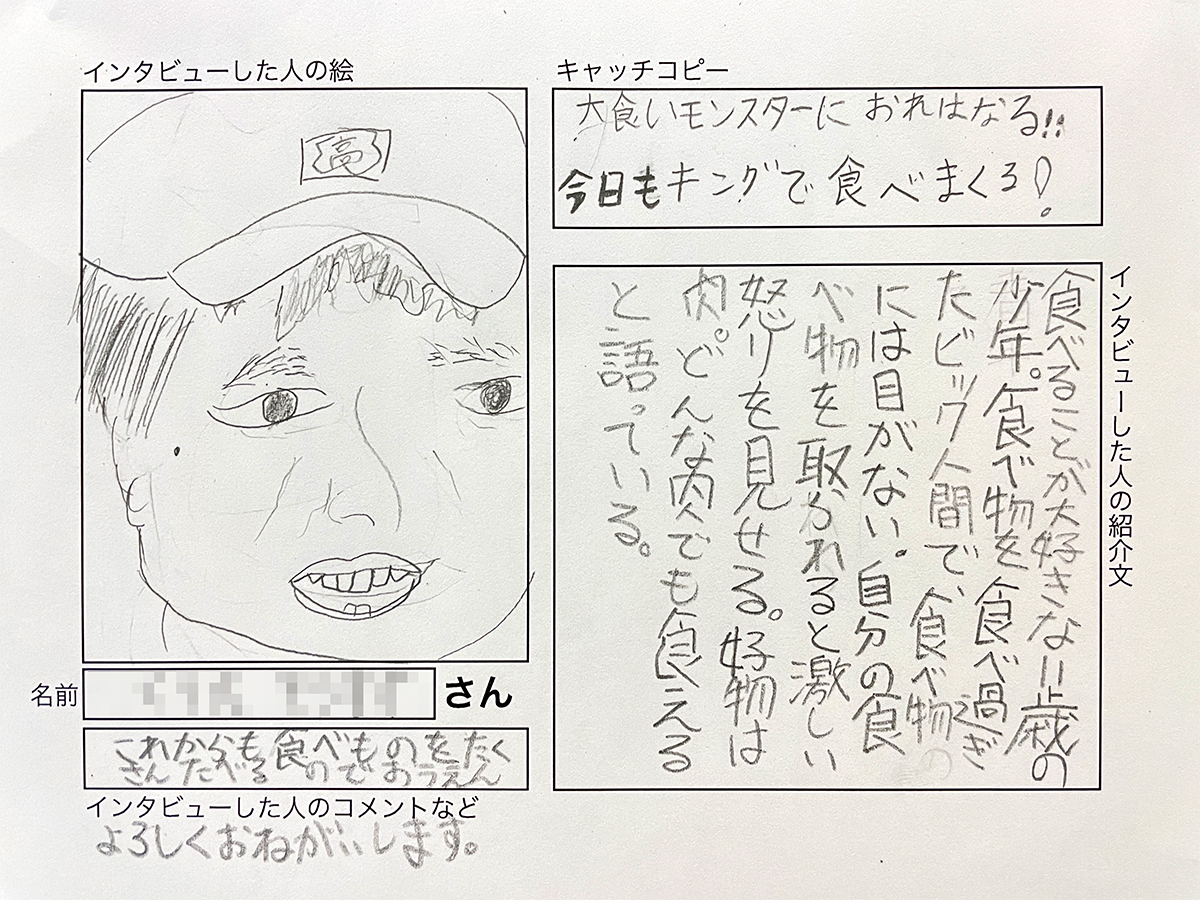 インタビューした人の絵
高
名前
さん
これから分も食べものをたく
さんたべるのでおうえん
インタビューした人のコメントなど
よろしくおねがいします。
キャッチコピー
大食いモンスターに おれはなる!!
今日もキングで食べまくろ!
インタビューした人の紹介文
食べることが大好きな11歳の
少年。食べ物を食べ過ぎ
たビック人間で、食べ物
には目がない。自分の食
べ物を取られると激しい
怒りを見せる。好物は
肉。どんな肉でも食える
と語っている。